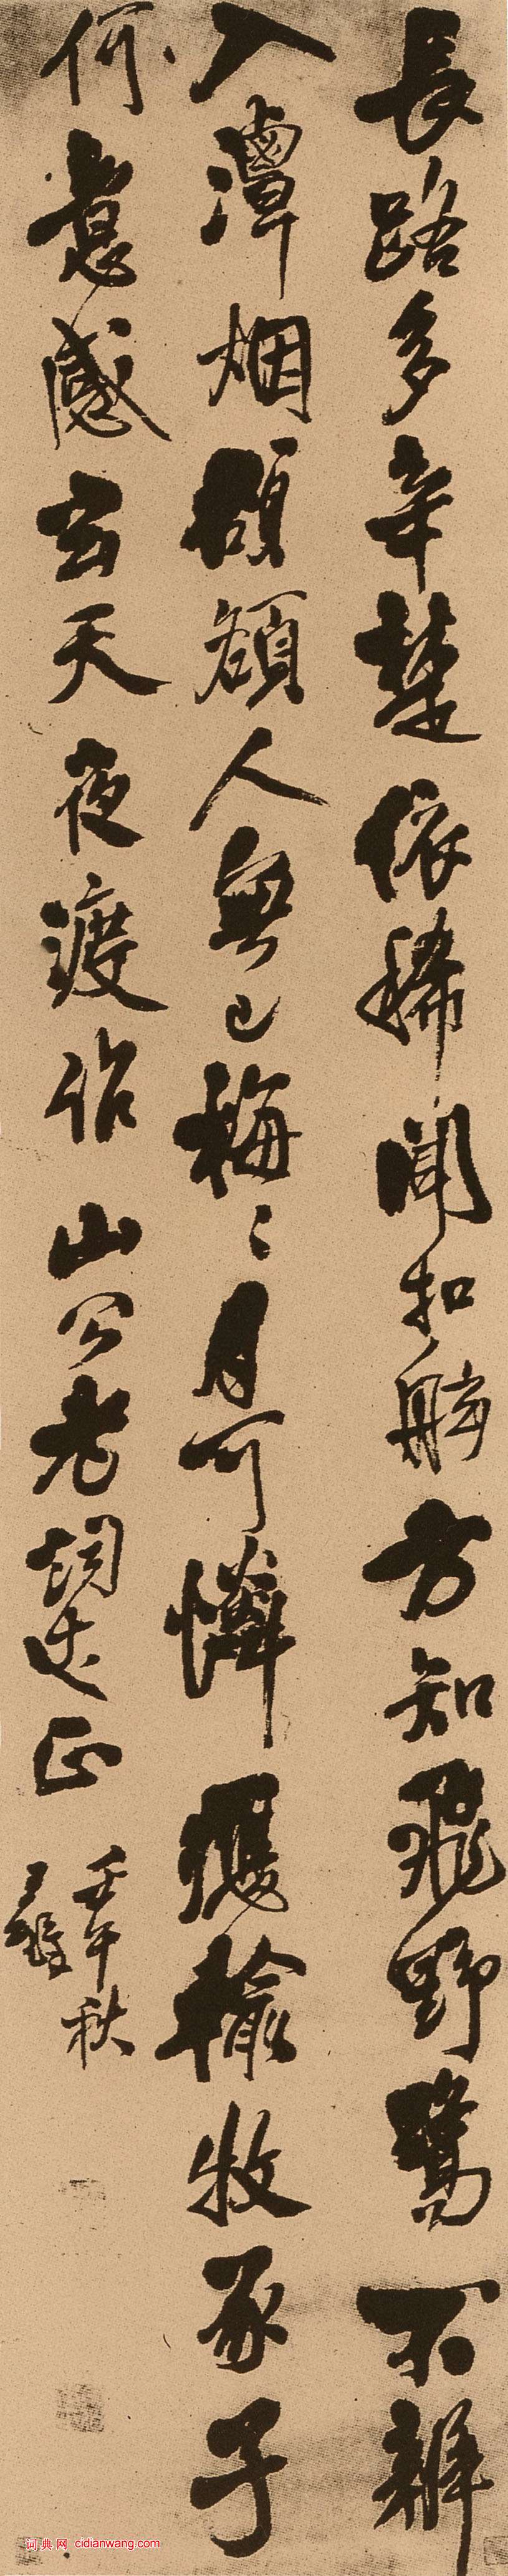 長路多辛楚依稀聞扣舷方知飛野鷺不辨
入潭烟頎頎人無已梅〻月可憐獲輸牧豕子
何意感玄天夜渡作山公老詞丈正
壬午秋
王鐸
词典网 cidianwang.com